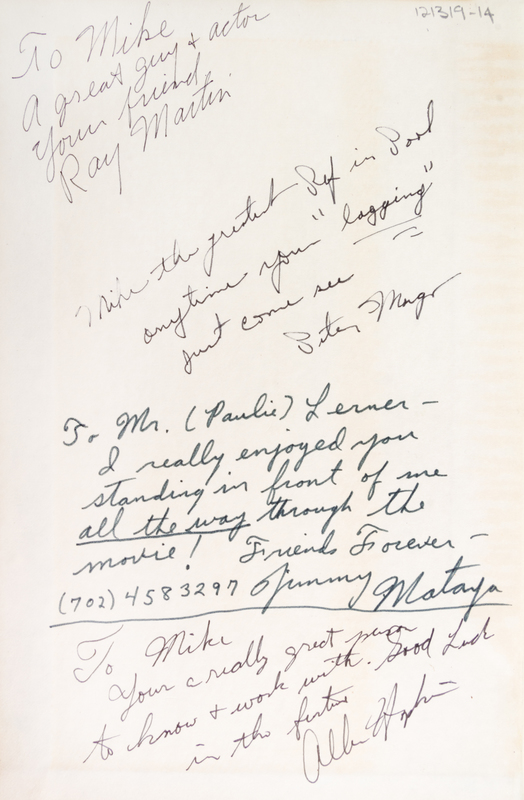 121319-14
To Mike
A great guy & actor
Your friend,
Ray Martin
Mike the greatest Ref in Pool
anytime your "lagging"
Just come see
Peter Margo
To Mr. (Paulie) Lerner –
I really enjoyed you
standing in front of me
all the way through the
movie! Friends Forever –
(702) 4583297 Jimmy Mataya
To Mike
Your a really great person
to know & work with. Good Luck
in the future
Allen Hopkins